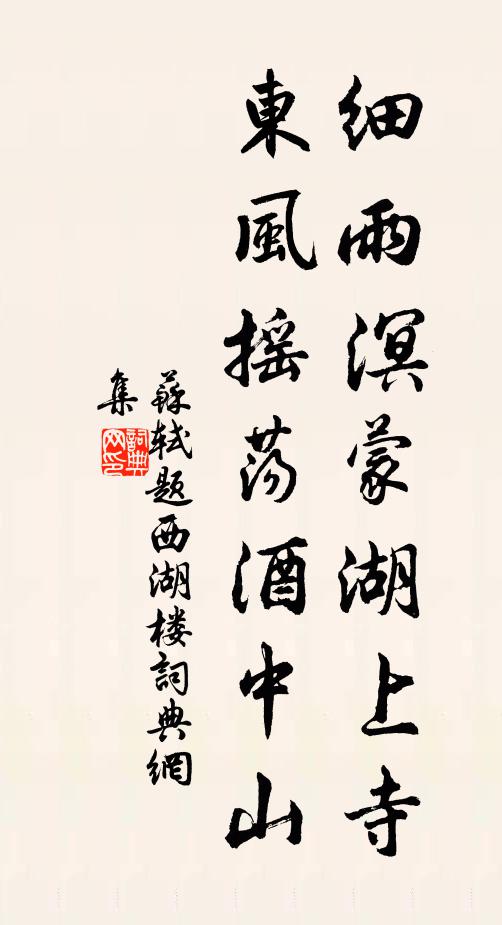 細雨溟蒙湖上寺
東風摇蕩酒中山
蘇軾题西湖楼詞典網
集
詞典
网印